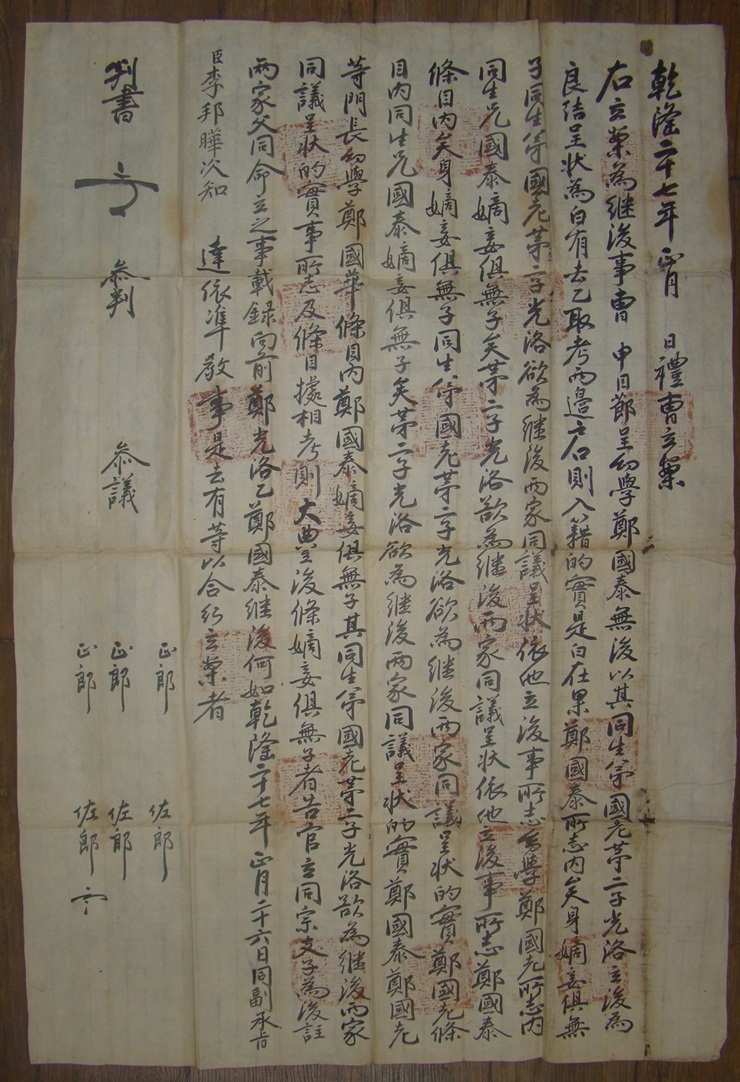 乾隆二十七年 正月 日禮曹立案
右立案爲继後事曹 申目節呈幼學鄭國泰無後以其同生弟國老苐二子光洛立後爲
良結呈狀爲白有去乙取考兩邊戶口則入籍的實是白在果鄭國泰所志內矣身嫡妾俱無
子同生弟國老苐二子光洛欲爲継後兩家同議呈狀依他立後事所志幼學鄭國老所志內
同生兄國泰嫡妾俱無子矣苐二子光洛欲爲继後兩家同議呈狀依他立後事所志鄭國泰
條目內矣身嫡妾俱無子同生弟國老苐二子光洛欲爲継後兩家同議呈狀的實鄭國老條
目內同生兄國泰嫡妾俱無子矣苐二子光洛欲爲継後兩家同議呈狀的實鄭國泰鄭國老
等門長幼學鄭國華條目內鄭國泰嫡妾俱無子其同生弟國老苐二子光洛欲爲継後兩家
同議呈狀的實事所志及條目據相考則大典立後條嫡妾俱無子者告官立同宗支子爲後註
兩家父同命立之事載錄向前鄭光洛乙鄭國泰継後何如乾隆二十七年正月二十六日同副承旨
臣李邦曄次知 達依準敎事是去有等以合行立案者
判書 參判 參議 正郎 佐郎
正郎 佐郎
正郎 佐郎